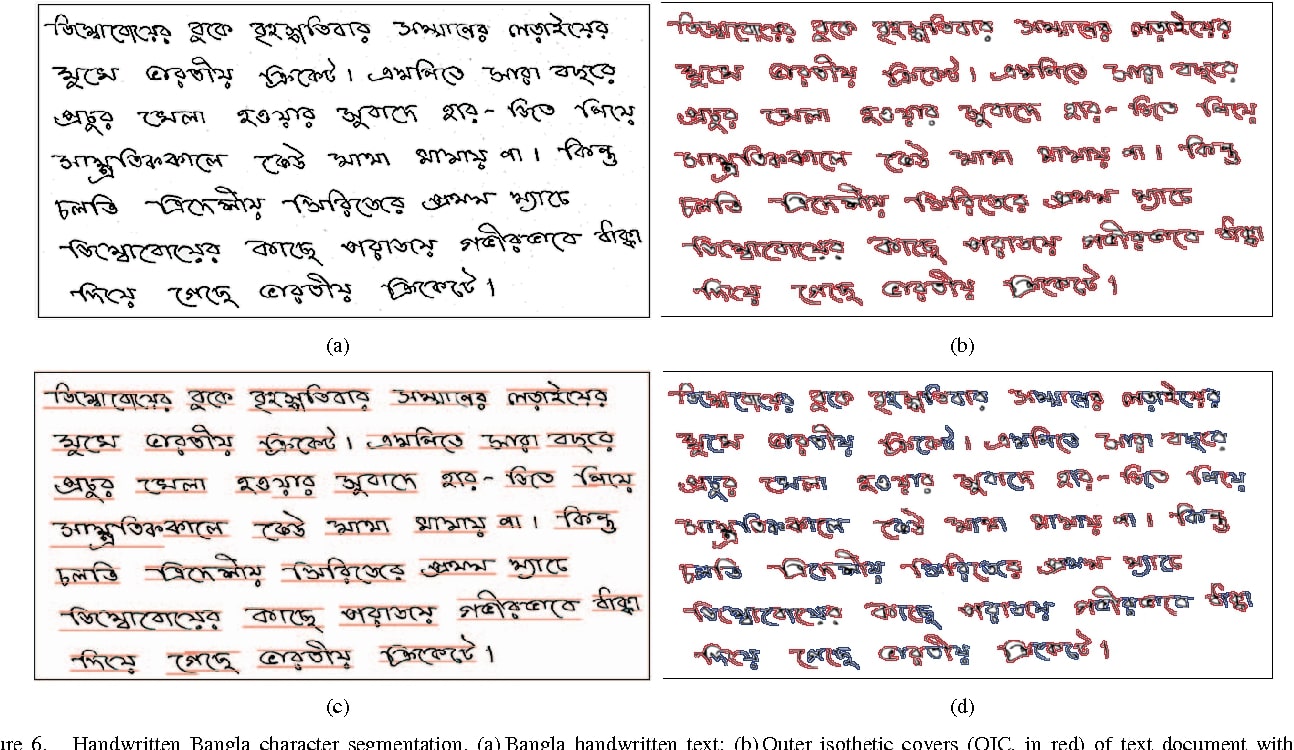 জিম্বোবোয়ের বুকে বৃহস্পতিবার সম্মানের লড়াইয়ের
মুখে ভারতীয় ক্রিকেট। এমনিতে সারা বছরে
প্রচুর খেলা হওয়ার সুবাদে হার- জিতে নিয়ে
সাম্প্রতিককালে কেউ মাথা ঘামায় না। কিন্তু
চলতি ত্রিদেশীয় সিরিজের প্রথম ম্যাচে
জিম্বোবোয়ের কাছে পরাজয়ে গভীরভাবে ধাক্কা
দিয়ে গেছে ভারতীয় ক্রিকেটে।
(a)
জিম্বোবোয়ের বুকে বৃহস্পতিবার সম্মানের লড়াইয়ের
মুখে ভারতীয় ক্রিকেট। এমনিতে সারা বছরে
প্রচুর খেলা হওয়ার সুবাদে হার- জিতে নিয়ে
সাম্প্রতিককালে কেউ মাথা ঘামায় না। কিন্তু
চলতি ত্রিদেশীয় সিরিজের প্রথম ম্যাচে
জিম্বোবোয়ের কাছে পরাজয়ে গভীরভাবে ধাক্কা
দিয়ে গেছে ভারতীয় ক্রিকেটে।
(b)
জিম্বোবোয়ের বুকে বৃহস্পতিবার সম্মানের লড়াইয়ের
মুখে ভারতীয় ক্রিকেট। এমনিতে সারা বছরে
প্রচুর খেলা হওয়ার সুবাদে হার- জিতে নিয়ে
সাম্প্রতিককালে কেউ মাথা ঘামায় না। কিন্তু
চলতি ত্রিদেশীয় সিরিজের প্রথম ম্যাচে
জিম্বোবোয়ের কাছে পরাজয়ে গভীরভাবে ধাক্কা
দিয়ে গেছে ভারতীয় ক্রিকেটে।
(c)
জিম্বোবোয়ের বুকে বৃহস্পতিবার সম্মানের লড়াইয়ের
মুখে ভারতীয় ক্রিকেট। এমনিতে সারা বছরে
প্রচুর খেলা হওয়ার সুবাদে হার- জিতে নিয়ে
সাম্প্রতিককালে কেউ মাথা ঘামায় না। কিন্তু
চলতি ত্রিদেশীয় সিরিজের প্রথম ম্যাচে
জিম্বোবোয়ের কাছে পরাজয়ে গভীরভাবে ধাক্কা
দিয়ে গেছে ভারতীয় ক্রিকেটে।
(d)
ure 6. Handwritten Bangla character segmentation. (a) Bangla handwritten text; (b) Outer isothetic covers (OIC, in red) of text document with